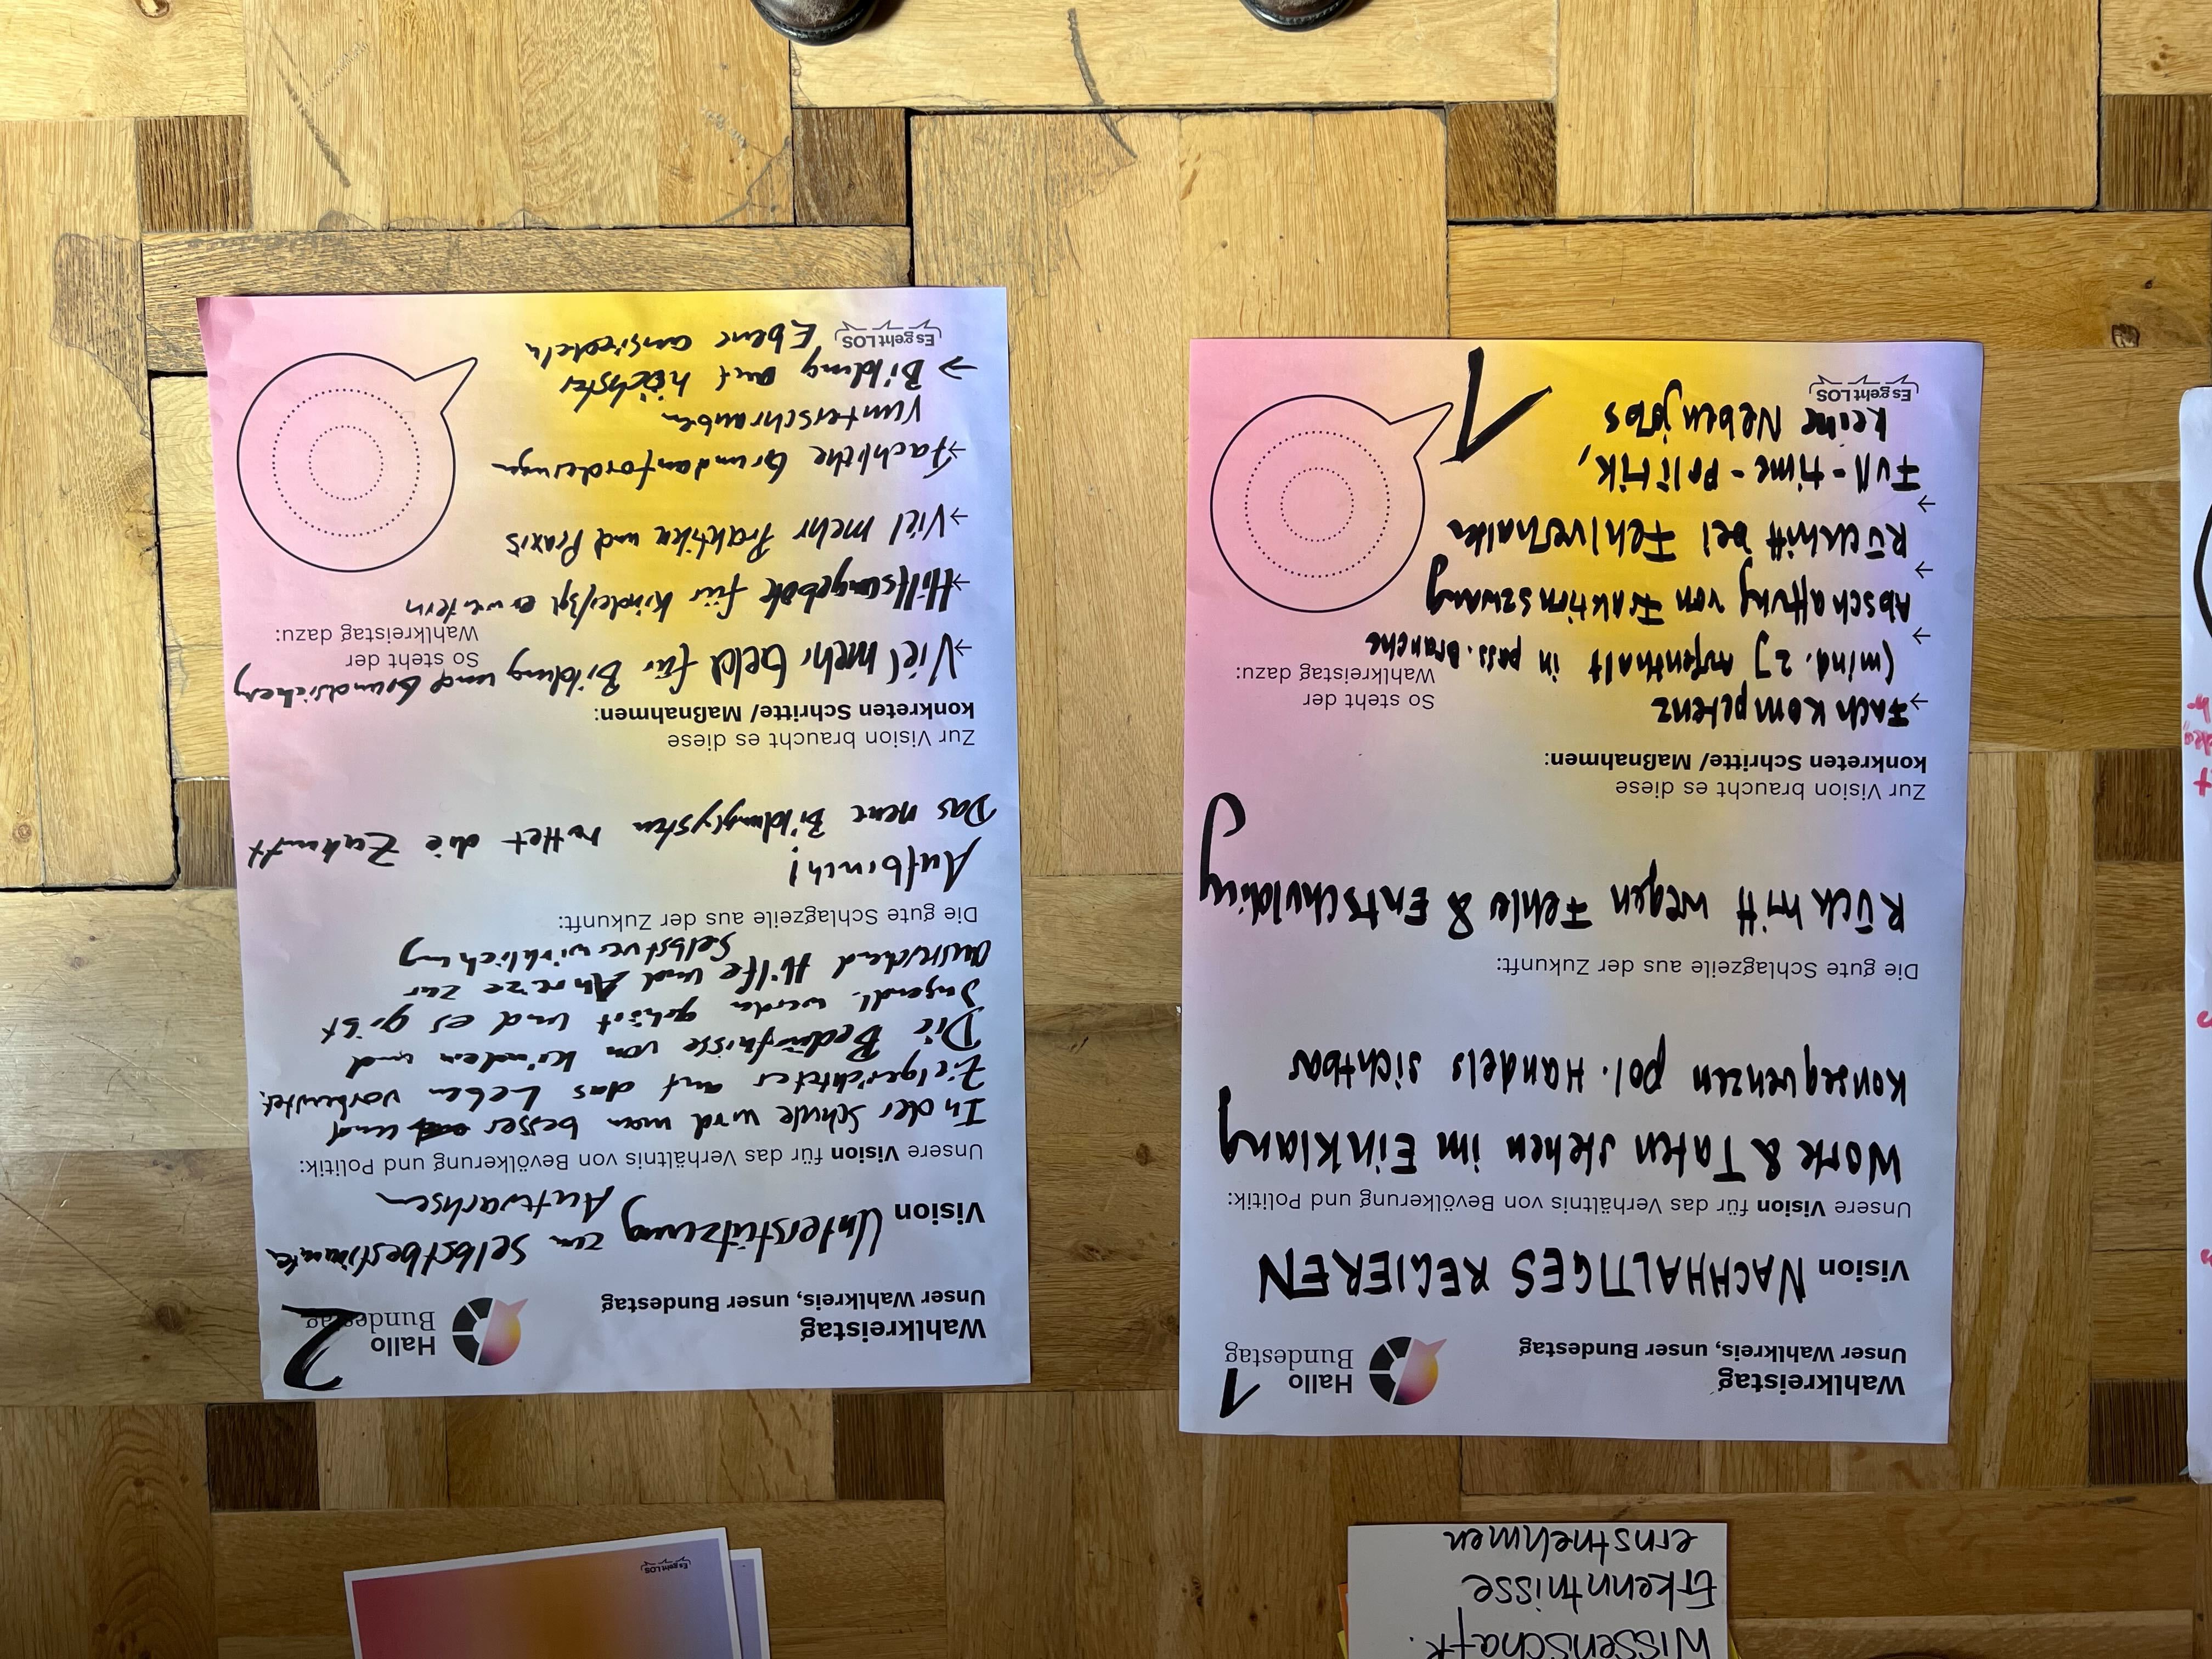 1
Wahlkreistag
Unser Wahlkreis, unser Bundestag
Hallo
Bundestag
Vision NACHHALTIGES REGIEREN
Unsere Vision für das Verhältnis von Bevölkerung und Politik:
Worte & Taten stehen im Einklang
Konsequenzen pol. Handels sichtbar
Die gute Schlagzeile aus der Zukunft:
Rücktritt wegen Fehler & Entschuldig
Zur Vision braucht es diese
konkreten Schritte/ Maßnahmen:
→ Fachkompetenz
(mind. 2J Aufenthalt in pass. Branche
→ Abschaffung von Fraktionszwang
→ Rücktritt bei Fehlverhalten
→ Full-time-Politik,
keine Nebenjobs
So steht der
Wahlkreistag dazu:
Es geht LOS
2
Wahlkreistag
Unser Wahlkreis, unser Bundestag
Hallo
Bundestag
Vision Unterstützung zum selbstbestimmten
Aufwachsen
Unsere Vision für das Verhältnis von Bevölkerung und Politik:
In der Schule wird man besser und
zielgerichteter auf das Leben vorbereitet.
Die Bedürfnisse von Kindern und
Jugendl. werden gehört und es gibt
ausreichend Hilfe und Anreize zur
Selbstverwirklichung
Die gute Schlagzeile aus der Zukunft:
Aufbruch!
Das neue Bildungssystem rettet die Zukunft
Zur Vision braucht es diese
konkreten Schritte/ Maßnahmen:
→ Viel mehr Geld für Bildung und Grundsicherg
→ Hilfsangebote für Kinder/Jgl. erweitern
→ Viel mehr Praktika und Praxis
→ Fachliche Grundanforderungen
runterschrauben
→ Bildung auf höchster
Ebene ansiedeln
So steht der
Wahlkreistag dazu:
Es geht LOS
Es geht LOS
Wissenschaft.
Erkenntnisse
ernstnehmen